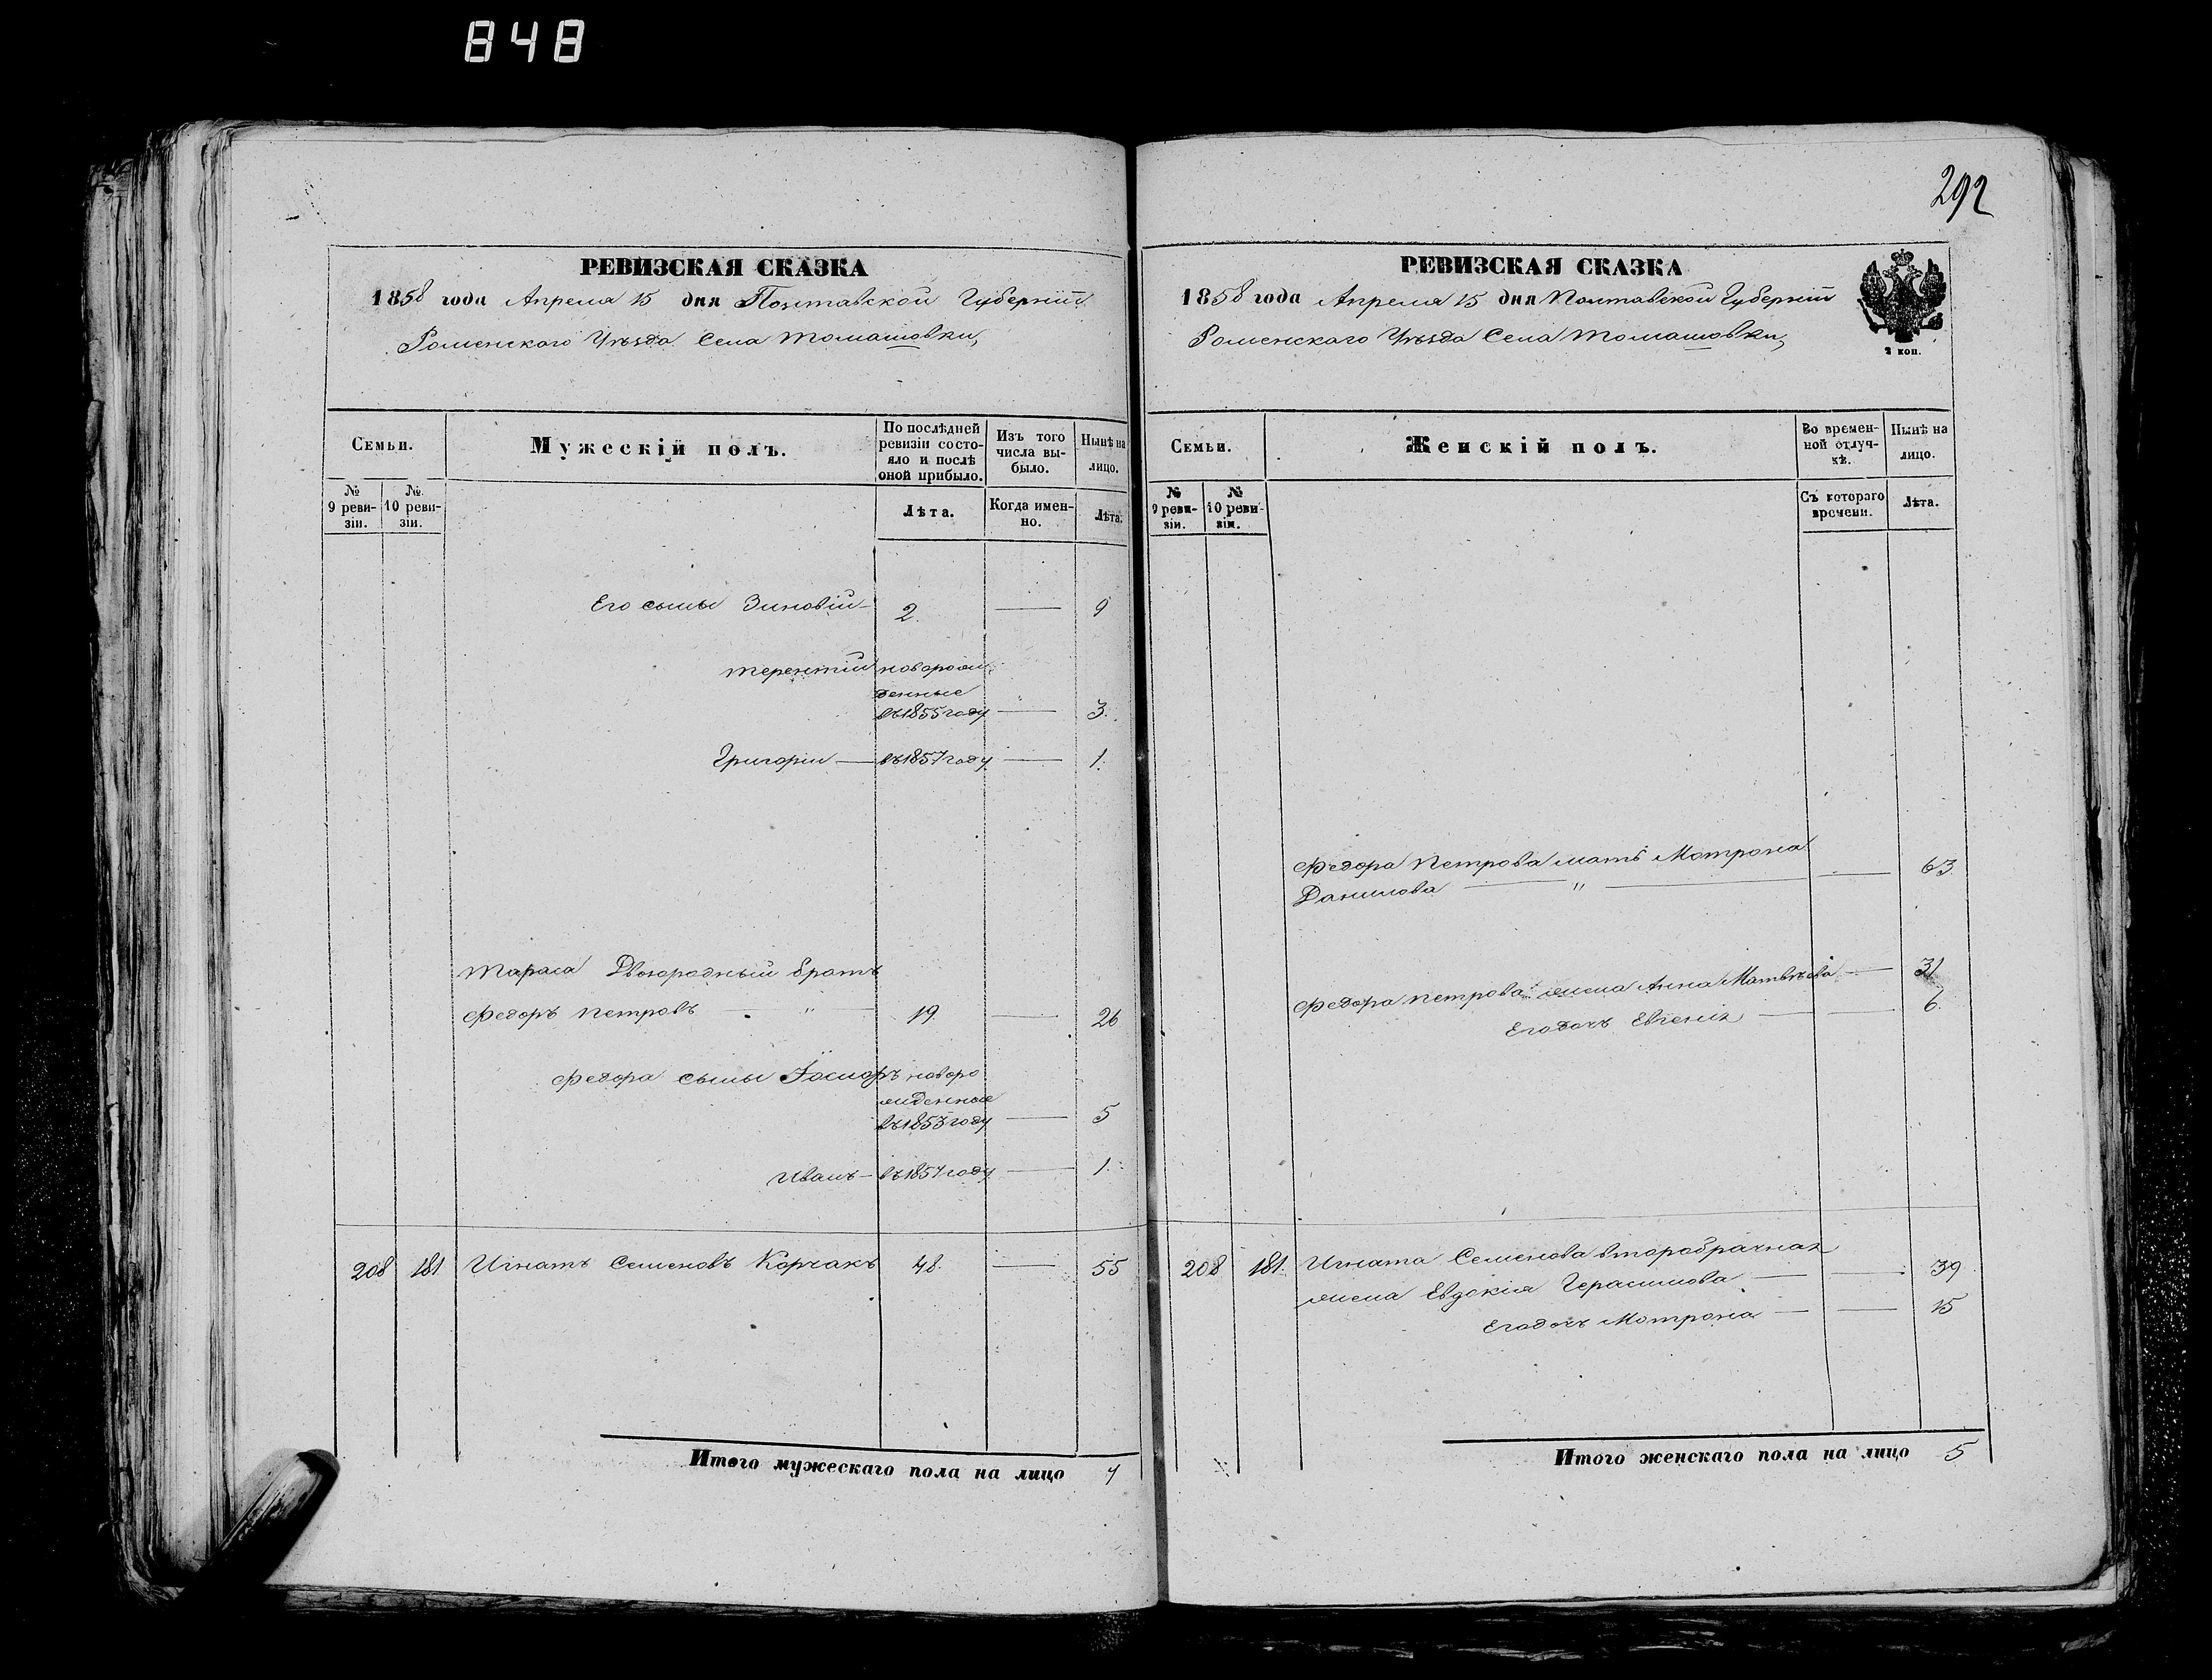 848
292
РЕВИЗСКАЯ СКАЗКА
1858 года Апреля 15 дня Полтавской Губерніи
Роменскаго Уѣзда Села Томашовки,
Семьи.
Мужескій полъ.
По послѣдней ревизіи состояло и послѣ оной прибыло.
Изъ того числа выбыло.
Нынѣ на лицо.
№ 9 ревизіи.
№ 10 ревизіи.
Лѣта.
Когда именно.
Лѣта.
Его сыны Зиновій 2. — 9
Терентій новорож
денные
въ 1855 году — 3.
Григорій — въ 1857 году — 1.
Тараса Двоюродный братъ
Федоръ Петровъ — " — 19. — 26
Федора сыны новоро
жденные
въ 1853 году — 5
Иванъ — въ 1857 году — 1.
208 181 Игнатъ Семеновъ Корчакъ 48. — 55
Итого мужескаго пола на лицо 7
РЕВИЗСКАЯ СКАЗКА
1858 года Апреля 15 дня Полтавской Губерніи
Роменскаго Уѣзда Села Томашовки,
2 коп.
Семьи.
Женскій полъ.
Во временной отлучкѣ.
Нынѣ на лицо.
№ 9 ревизіи.
№ 10 ревизіи.
Съ котораго времени.
Лѣта.
Федора Петрова мать Мотрона
Данилова — " — — 63.
Федора Петрова жена Анна Матвѣева — 31
Его дочь Евгенія — — 6.
208 181. Игната Семенова второбрачная
жена Евдокия Герасимова — — 39
Его дочь Мотрона — — 15
Итого женскаго пола на лицо 5